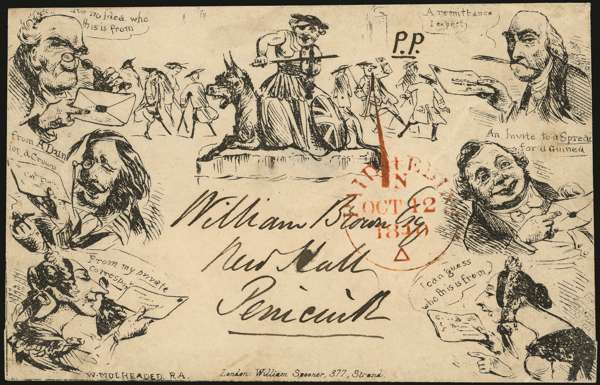 no Idea who
this is from
A remittance
I expect
P.P.
from a Dun
for a Crown
An Invite to a Spread
for a Guinea
OCT 12
1840
William Brown Esq
New Hall
Penicuik
From my private
correspt
I can guess
who this is from
W. MULHEADED. R.A.
London: William Spooner, 377, Strand